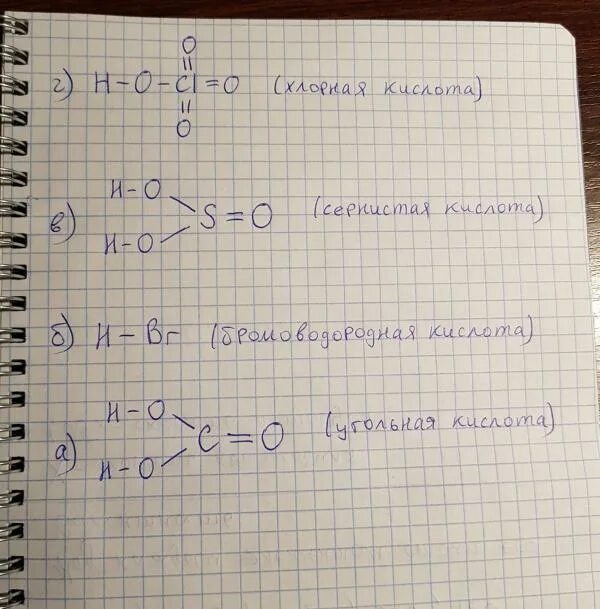 O
||
г) H-O-Cl=O (хлорная кислота)
||
O
H-O
в) S=O (сернистая кислота)
H-O
б) H-Br (бромоводородная кислота)
H-O
а) C=O (угольная кислота)
H-O